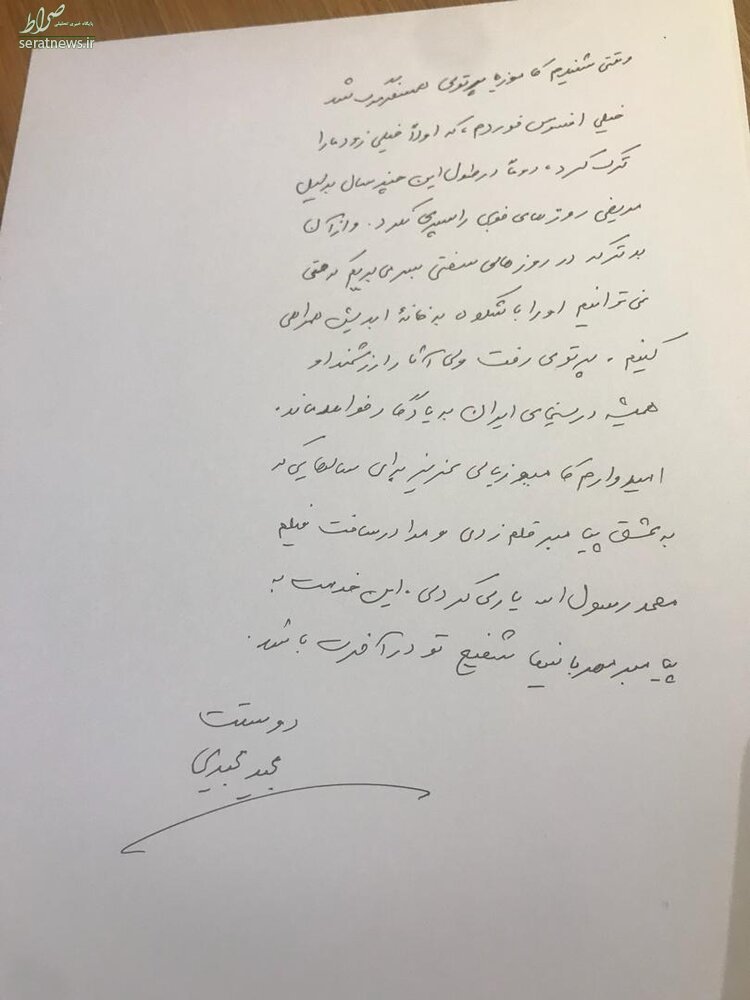 صراط
پایگاه خبری تحلیلی
seratnews.ir
وقتی شنیدم کامبوزیا پرتوی شد
خیلی افسوس خوردم، که اولاً خیلی زود ما را
ترک کرد، دوماً در طول این چند سال بدلیل
مریضی روزهای خوبی را سپری نکرد. و از آن
بدتر که در روزهای سختی بسر می‌بریم که حتی
نمی‌توانیم او را باشکوه به خانهٔ ابدیش همراهی
کنیم. پرتوی رفت ولی آثار ارزشمند او
همیشه در سینمای ایران به یادگار خواهد ماند.
امیدوارم کامبوزیای عزیز برای سالهایی که
به عشق پیامبر قلم زدی و مرا در ساخت فیلم
محمد رسول الله یاری کردی. این خدمت به
پیامبر مهربانیها شفیع تو در آخرت باشد.
دوستت
مجید مجیدی